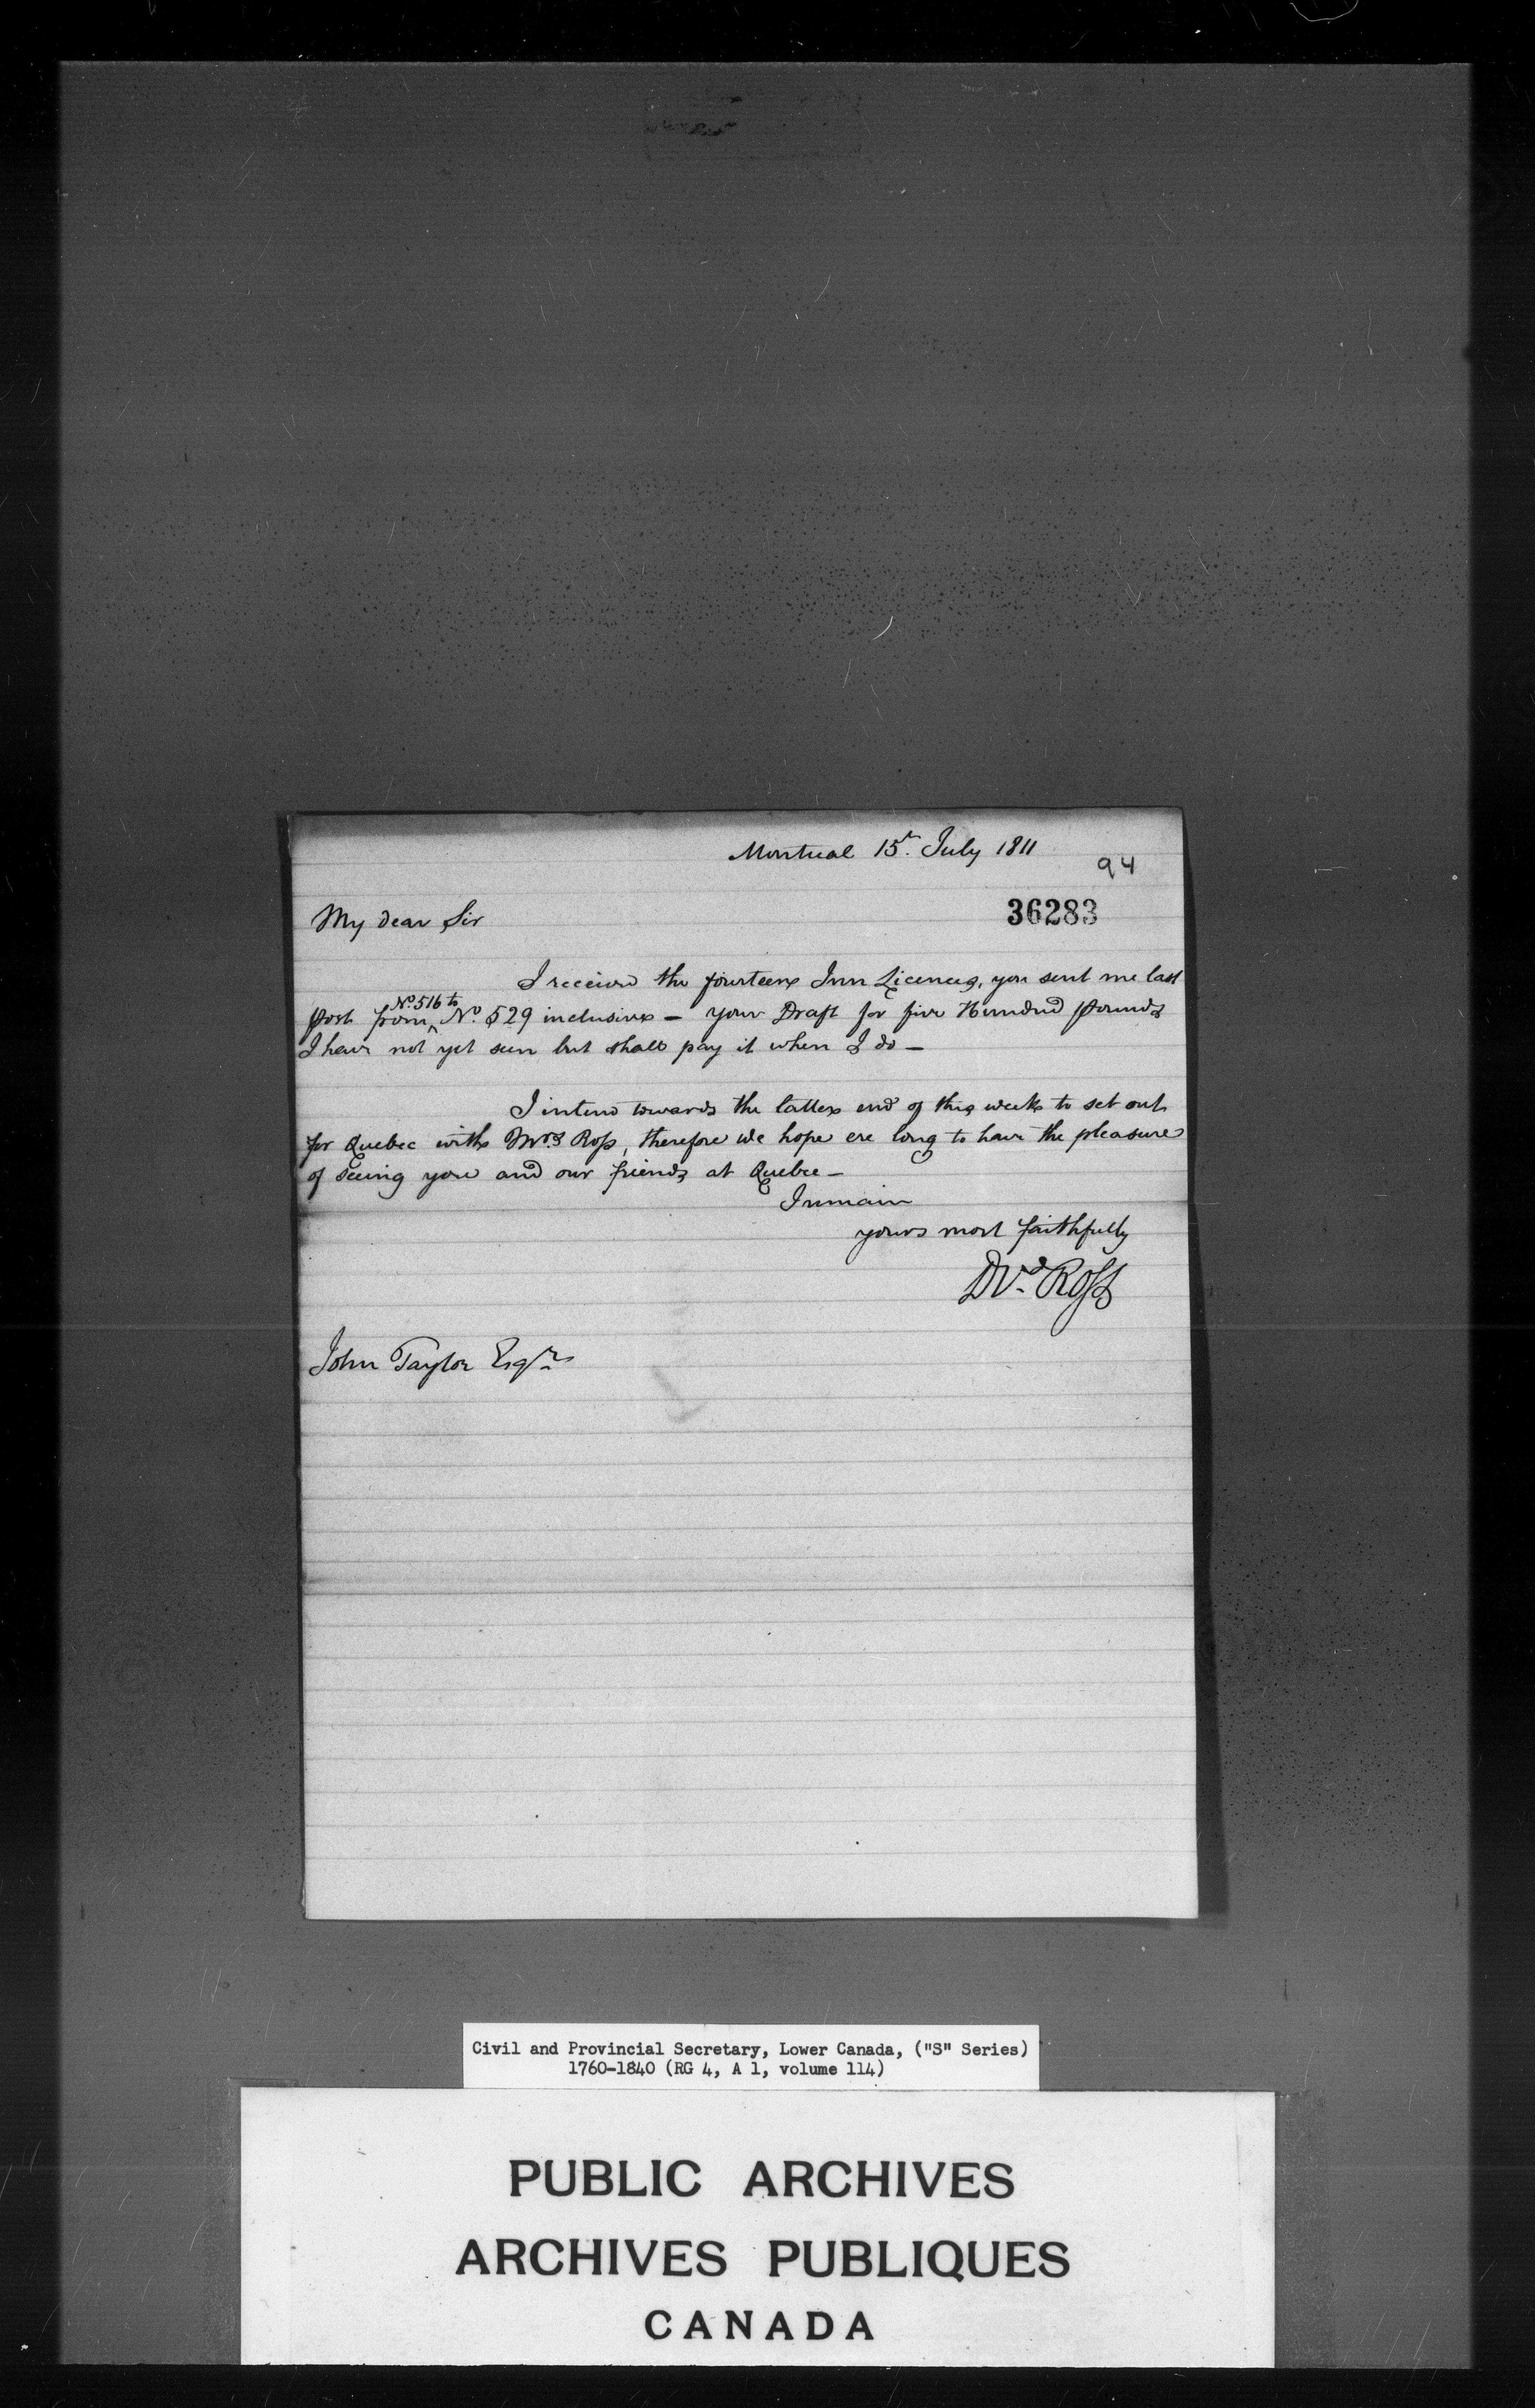 Montreal 15t. July 1811
94
36283
My dear Sir
I received the fourteen Inn Licences, you sent me last
post from ^ No. 516 to No. 529 inclusive - your Draft for five Hundred pounds
I have not yet seen but shall pay it when I do -
I intend towards the latter end of this week to set out
for Quebec with Mrs. Ross, therefore we hope ere long to have the pleasure
of seeing you and our friends at Quebec -
I remain
yours most faithfully
Dvd. Ross
John Taylor Esqr.
Civil and Provincial Secretary, Lower Canada, ("S" Series)
1760-1840 (RG 4, A 1, volume 114)
PUBLIC ARCHIVES
ARCHIVES PUBLIQUES
CANADA